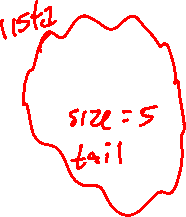 list1
size = 5
tail